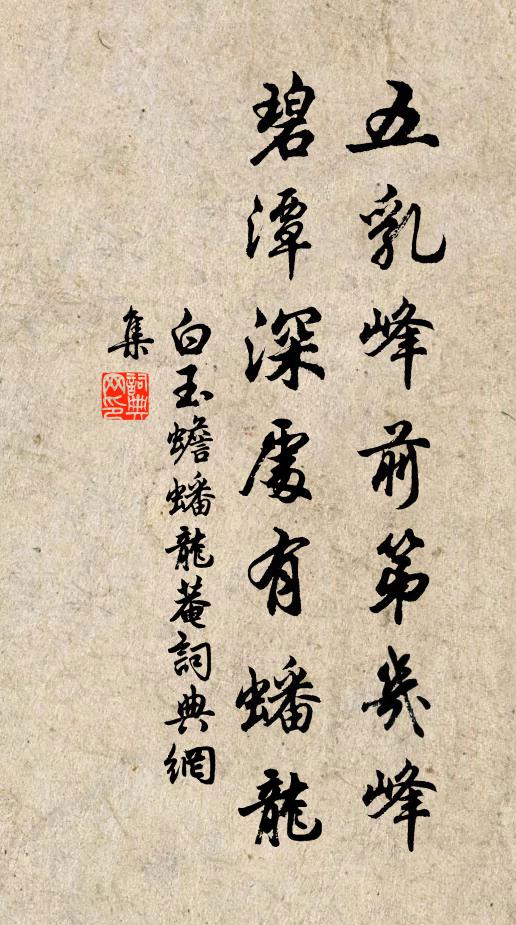 五乳峰前第幾峰
碧潭深處有蟠龍
白玉蟾蟠龍菴詞典網
集
詞典網印